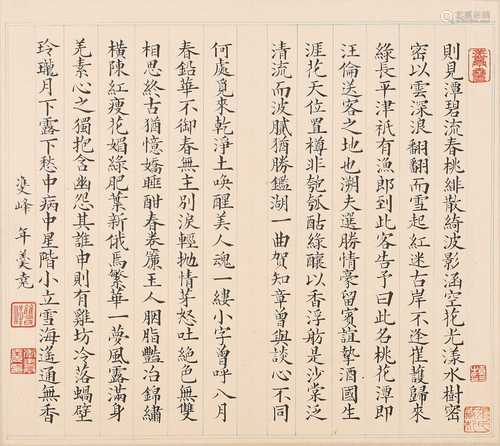 則見潭碧流春桃緋散綺波影涵空花光漾水樹密
密以雲深浪翻翻而雪起紅迷古岸不逢崔護歸來
綠長平津祇有漁郎到此客告予曰此名桃花潭即
汪倫送客之地也溯夫選勝情豪留賓誼摯酒國生
涯花天位置樽非匏瓠酤綠釀以香浮舫是沙棠泛
清流而波膩猶勝鑑湖一曲賀知章曾與談心不同
何處覓來乾淨土喚醒美人魂一縷小字曾呼八月
春鉛華不御春無主別淚輕拋情芽怒吐絕色無雙
相思終古猶憶嬌睡酣春卷簾主人胭脂豔冶錦繡
橫陳紅瘦花媚綠肥葉新俄焉繁華一夢風露滿身
羌素心之獨抱含幽怨其誰申則有雞坊冷落蝸壁
玲瓏月下露下愁中病中星階小立雪海遙通無香
年羹堯